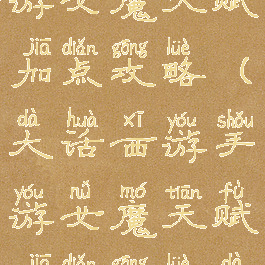 女魔天赋
jiā diǎn gōng lüè
加点攻略（
dà huà xī yóu shǒu
大话西游手
yóu nǚ mó tiān fù
游女魔天赋
jiā diǎn gōng lüè dà